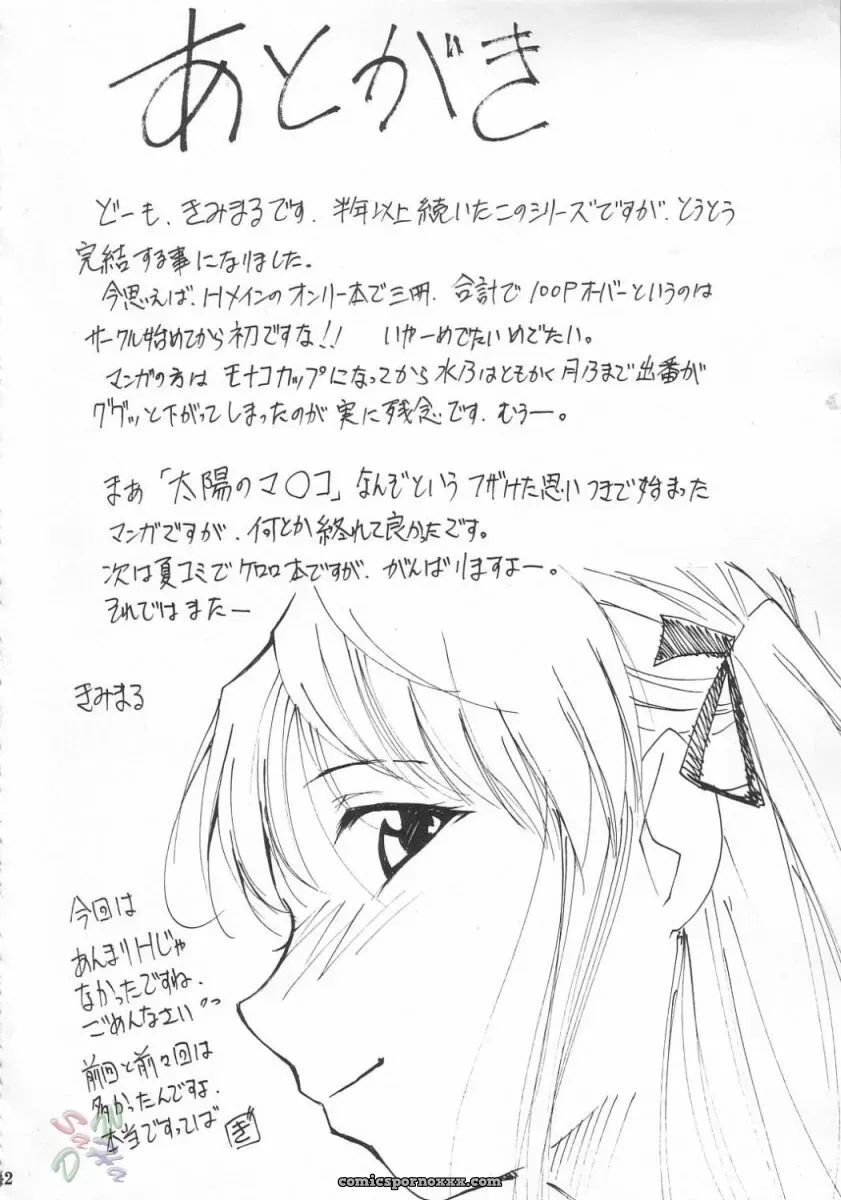 あとがき
どーも、きみまるです、半年以上続いたこのシリーズですが、とうとう
完結する事になりました。
今思えば、Hメインのオンリー本で三冊、合計で100Pオーバーというのは
サークル始めてから初ですな!! いやーめでたいめでたい。
マンガの方はモナコカップになってから水乃はともかく月乃まで出番が
ググッと下がってしまったのが実に残念です、むぅー。
まぁ「太陽のマ〇コ」なんぞというフザけた思いつきで始まった
マンガですが、何とか終れて良かったです。
次は夏コミでケロロ本ですが、がんばりますよー。
それではまたー
きみまる
今回は
あんまりHじゃ
なかったですね、
ごめんなさい
前回と前々回は
多かったんですよ、
本当ですってば
ぎ
42
comicspornoxxx.com